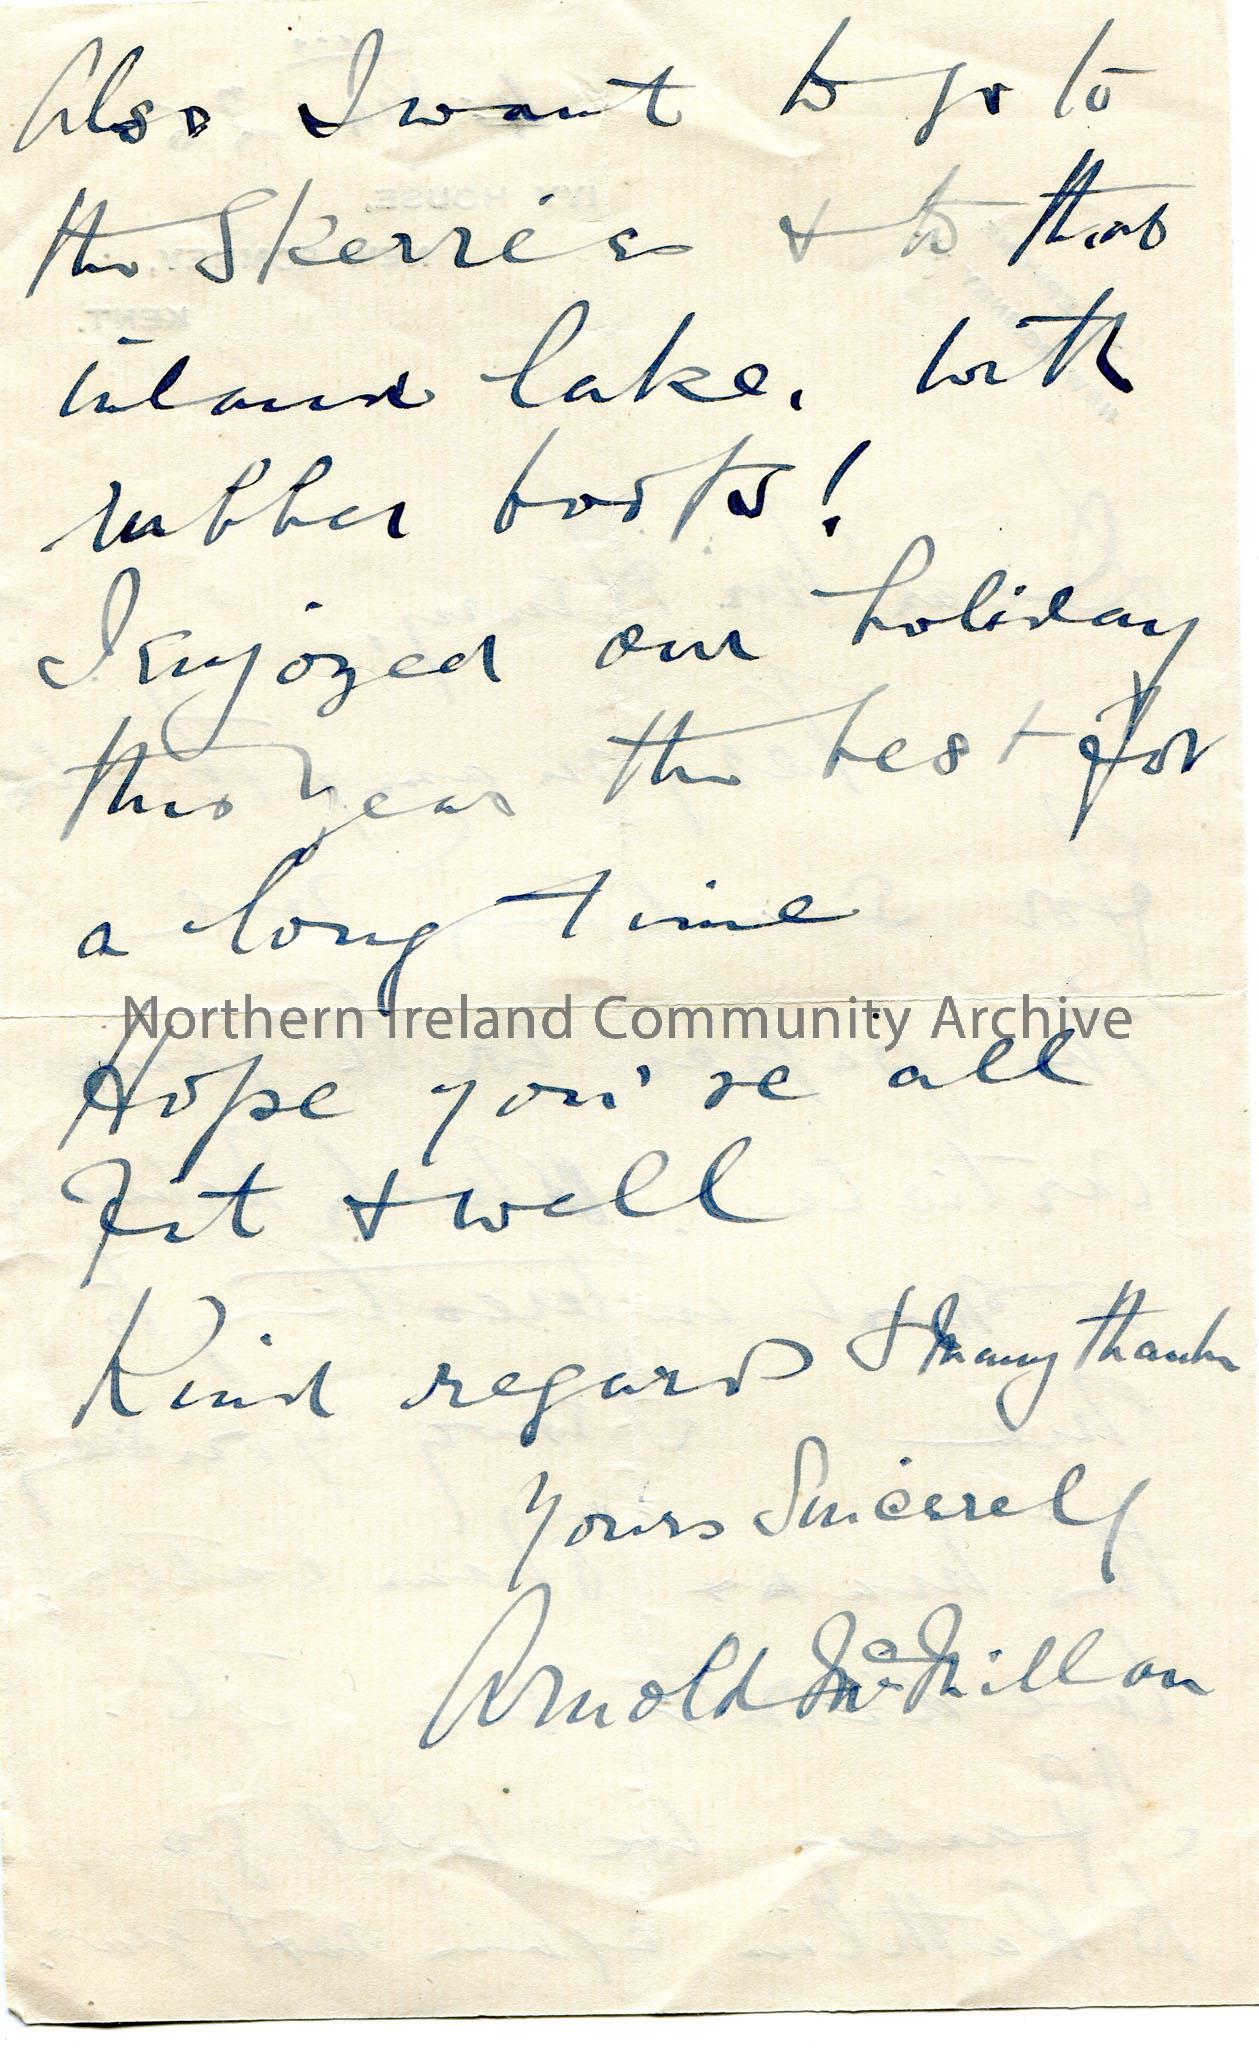 Also I want to go to
the Skerries & to that
inland lake, with
rubber boots!
I enjoyed our holiday
this year the best for
a long time
Northern Ireland Community Archive
Hope you're all
Fit & well
Kind regards & many thanks
Yours Sincerely
Arnold McMillan